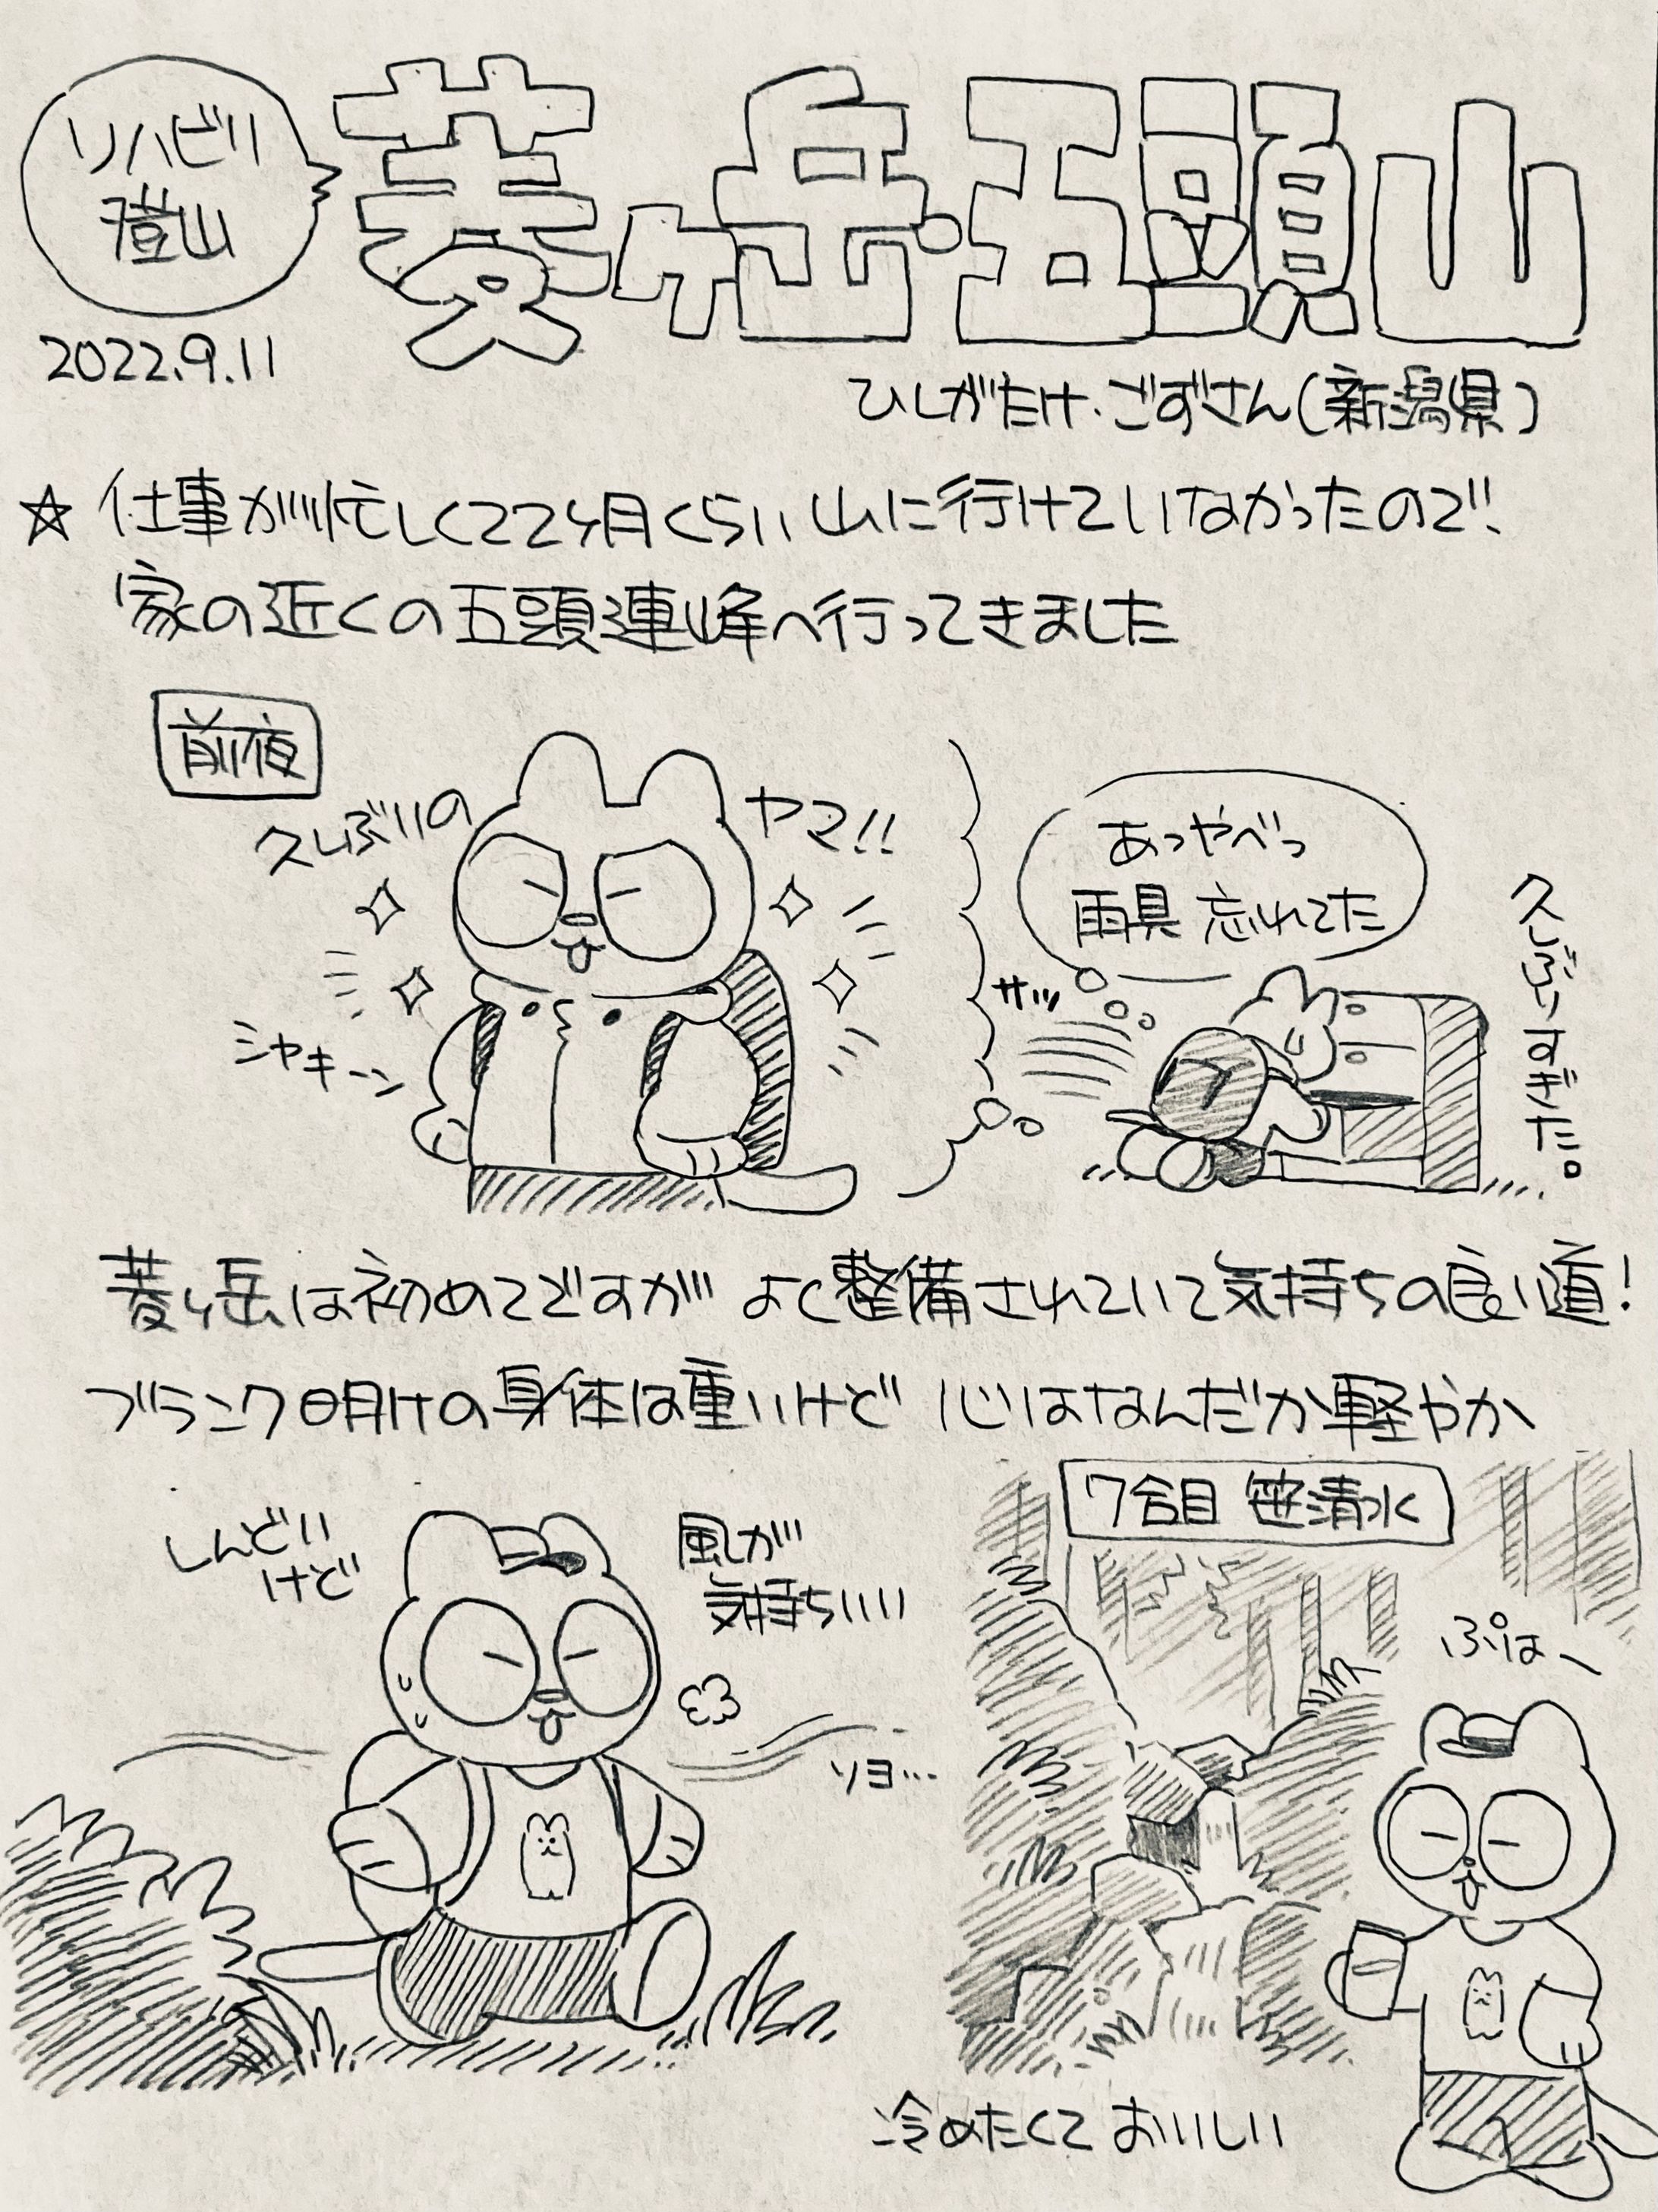 リハビリ
登山
菱ヶ岳・五頭山
2022.9.11
ひしがたけ・ごずさん(新潟県)
☆仕事が忙しくて2ヶ月くらい山に行けていなかったので!!
家の近くの五頭連峰へ行ってきました
前夜
久しぶりの
ヤマ!!
シャキーン
あっやべっ
雨具 忘れてた
サッ
久しぶりすぎた。
菱ヶ岳は初めてですが よく整備されていて気持ちの良い道!
ブランク明けの身体は重いけど 心はなんだか軽やか
しんどい
けど
風が
気持ちいい
ソヨ…
7合目 笹清水
ぷはー
冷めたくて おいしい